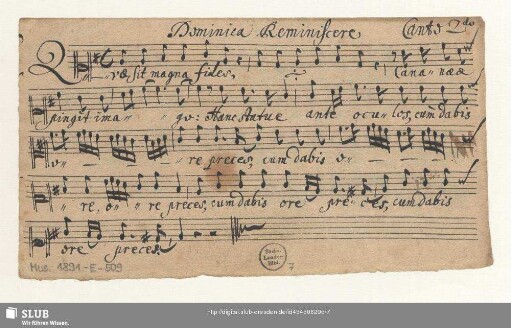 Dominica Reminiscere Canto 2do
Quæ sit magna fides, Cananææ
pingit imago: Hanc statue ante oculos, cum dabis
o-re preces, cum dabis o-
re, o-re preces, cum dabis ore preces, cum dabis
ore preces.
Mus. 1891-E-509
7
SLUB
Wir führen Wissen.